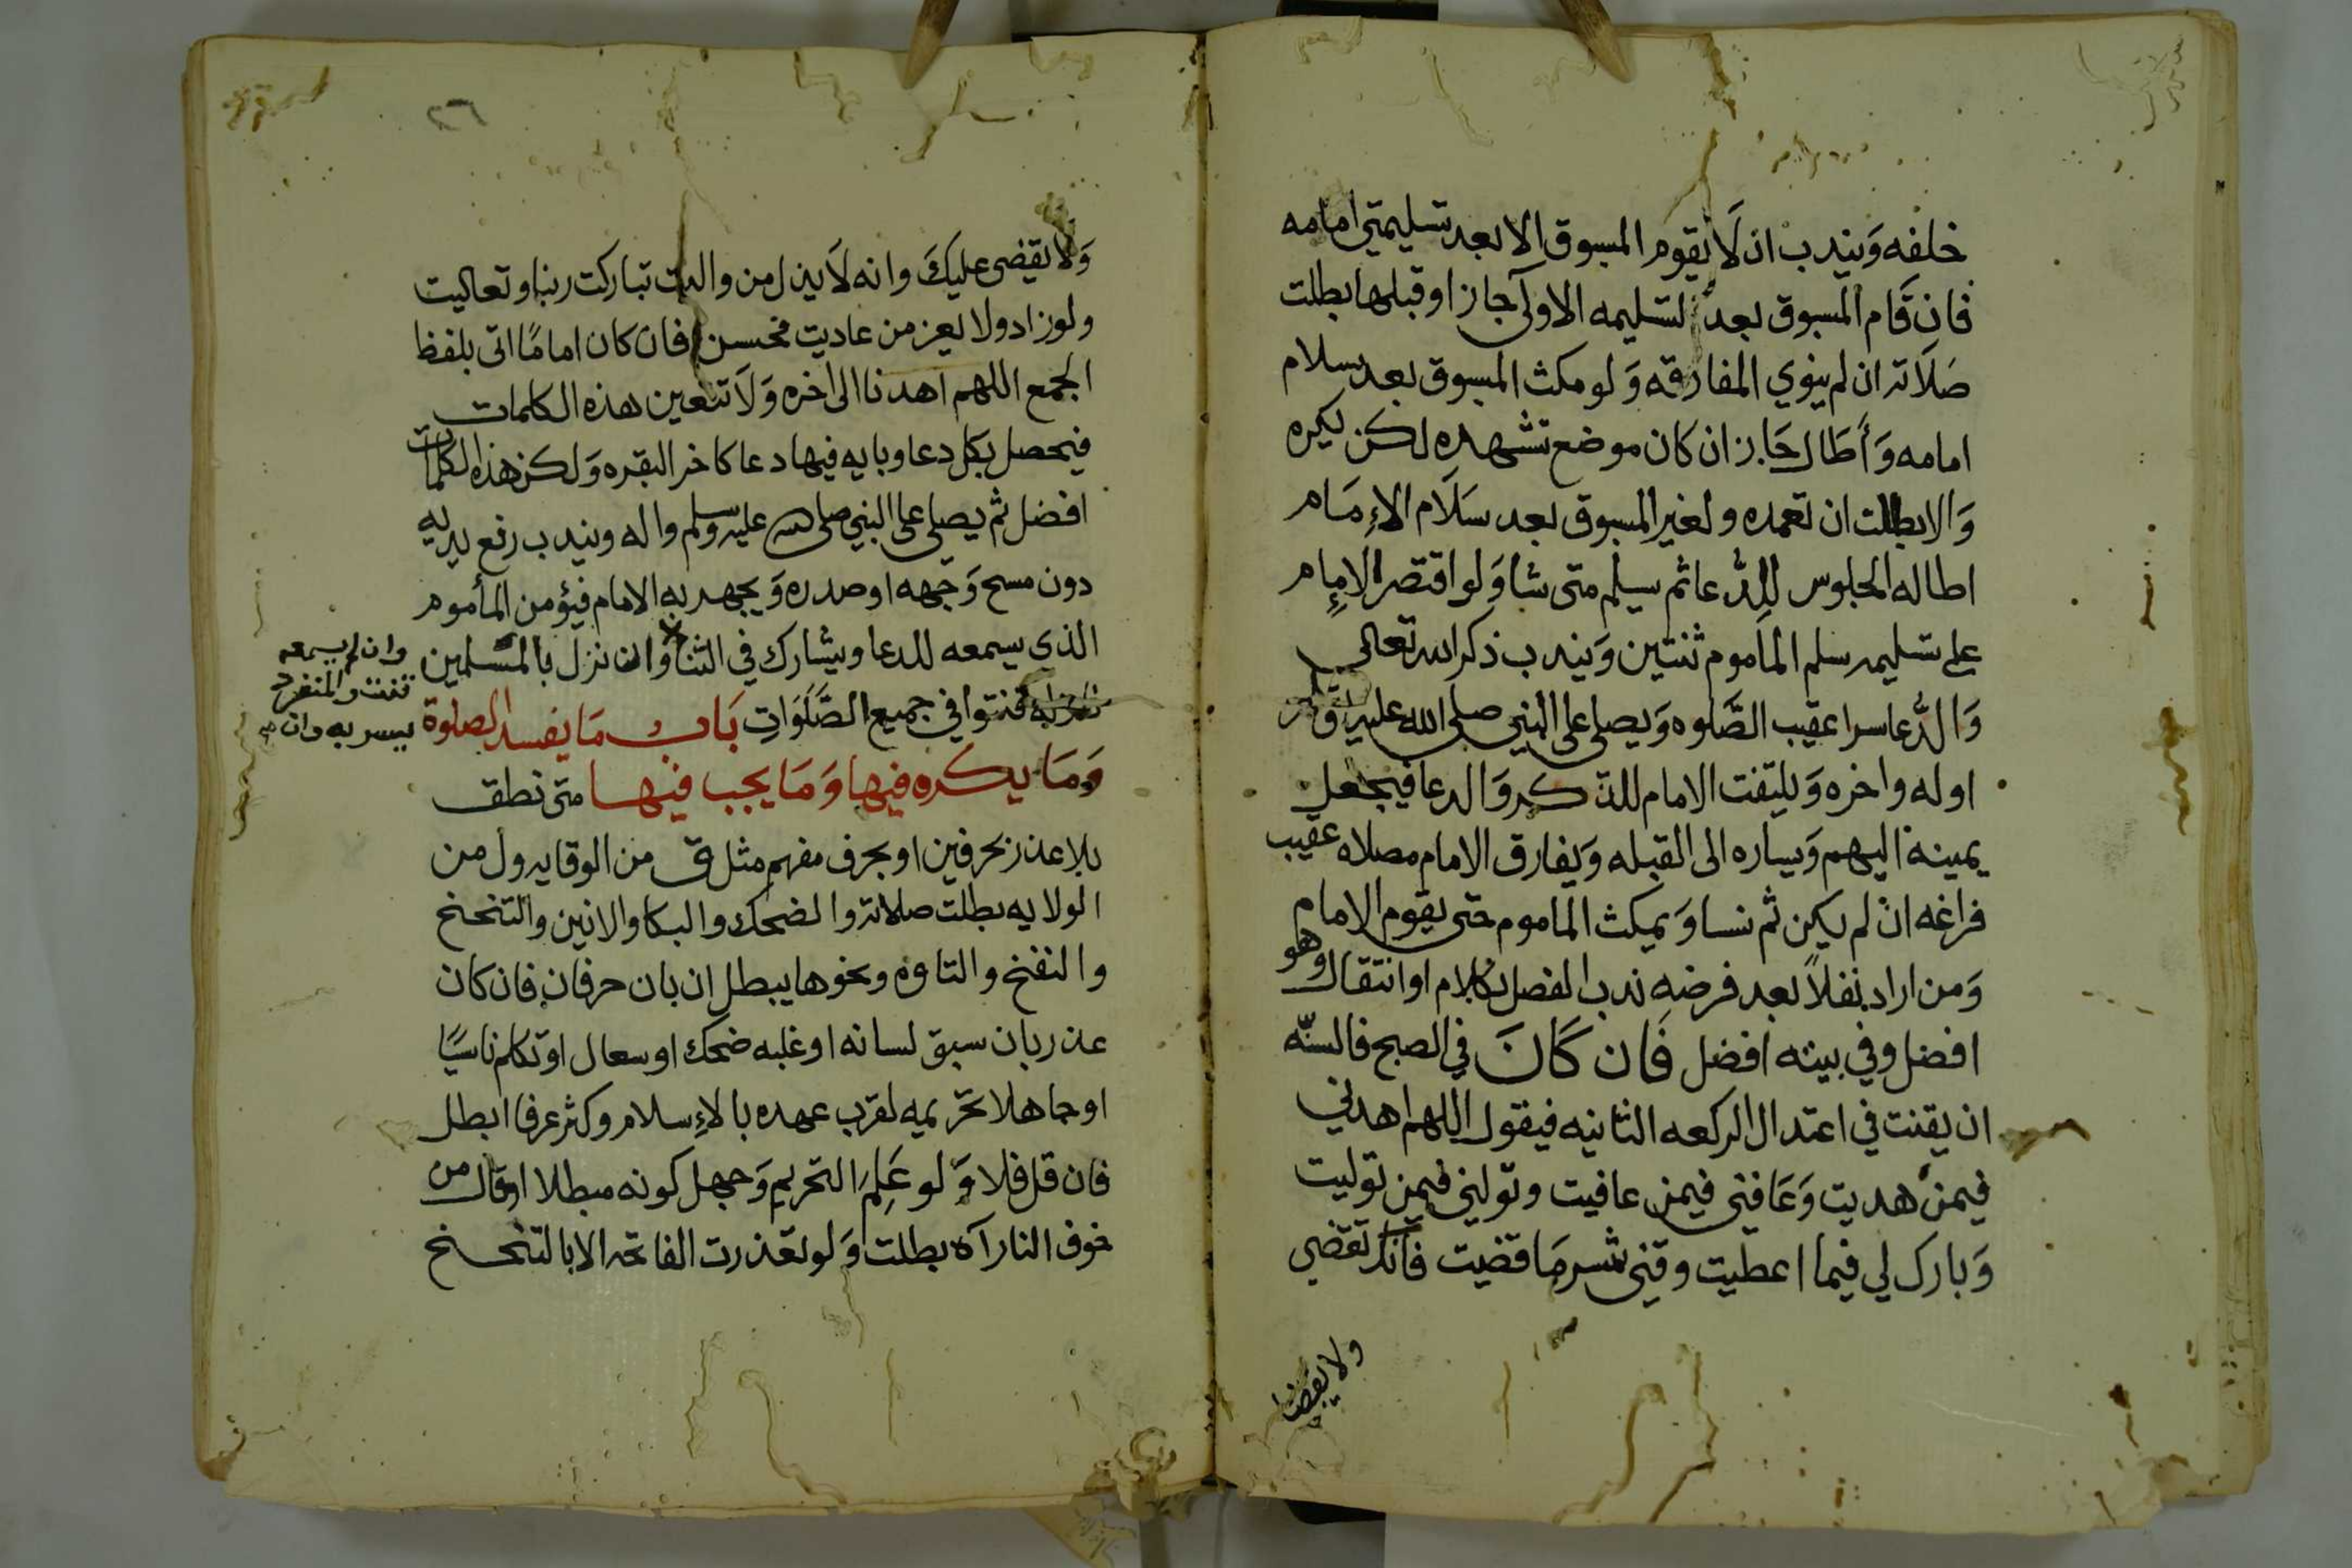 خلفه وَيندب ان لَا يقوم المسبوق الا بعد تسليمتي امامه
فان قَام المسبوق بعد التسليمه الاولى جاز او قبلها بطلت
صَلَاته ان لم ينوي المفارقه وَلو مكث المسبوق بعد سلام
امامه وَأَطَال جَاز ان كان موضع تشهده لكن يكره
وَالا بطلت ان تعمده ولغير المسبوق بعد سَلَام الاءِمَام
اطاله الجلوس للدُّعا ثم يسلم متى شا وَلو اقتصر الامام
على تسليمه سلم الماموم ثنتين وَيندب ذكر الله تعالى
وَالدُّعا سرا عقيب الصَّلوه وَيصلي على النبي صلى الله عليه
اوله واخره وَيلتفت الامام للذكر وَالدعا فيجعل
يمينه اليهم وَيساره الى القبله وَيفارق الامام مصلاه عقيب
فراغه ان لم يكن ثم نسا وَيمكث الماموم حتى يقوم الامام
وَمن اراد نفلاً بعد فرضه ندب الفصل بكلام او انتقال وهو
افضل وفي بيته افضل فَان كَانَ في الصبح فالسنّه
ان يقنت في اعتدال الركعه الثانيه فيقول اللهم اهدني
فيمن هديت وَعَافني فيمن عافيت وتولني فيمن توليت
وَبارك لي فيما اعطيت وقني شر مَا قضيت فانك تقضي
ولا يقضا
٢٦
وَلا يقضى عليكَ وانه لَا يذل من واليت تباركت ربنا وتعاليت
ولو زاد ولا يعز من عاديت فحسن فان كان امامًا اتى بلفظ
الجمع اللهم اهدنا الى اخره وَلَا تتعين هذه الكلمات
فيحصل بكل دعا وبايه فيها دعا كاخر البقره وَلكن هذه الكلمات
افضل ثم يصلي على النبي صلى الله عليه وسلم واله ويندب رفع يديه
دون مسح وَجهه او صدره وَيجهر به الامام فيؤمن المأموم
الذي يسمعه للدعا ويشارك في الثنا وان نزل بالمسلمين
وان لم يسمعه
قنت والمنفرد
يسر به وان
نازله قنتوا في جميع الصَّلَوَاتِ بَاب مَا يفسد الصلوة
وَمَا يكره فيها وَمَا يجب فيها متى نطق
بلا عذر بحرفين او بحرف مفهم مثل ق من الوقايه ول من
الولايه بطلت صلاته والضحك والبكا والانين والتنحنح
والنفخ والتاوه ونحوها يبطل ان بان حرفان فان كان
عذر بان سبق لسانه او غلبه ضحك او سعال او تكلم ناسيًا
او جاهلا تحريمه لقرب عهده بالاءِسلام وكثر عرفا ابطل
فان قل فلا وَلو عَلِمَ التحريم وَجهل كونه مبطلا او قال من
خوف النار آه بطلت وَلو تعذرت الفاتحه الا بالتنحنح